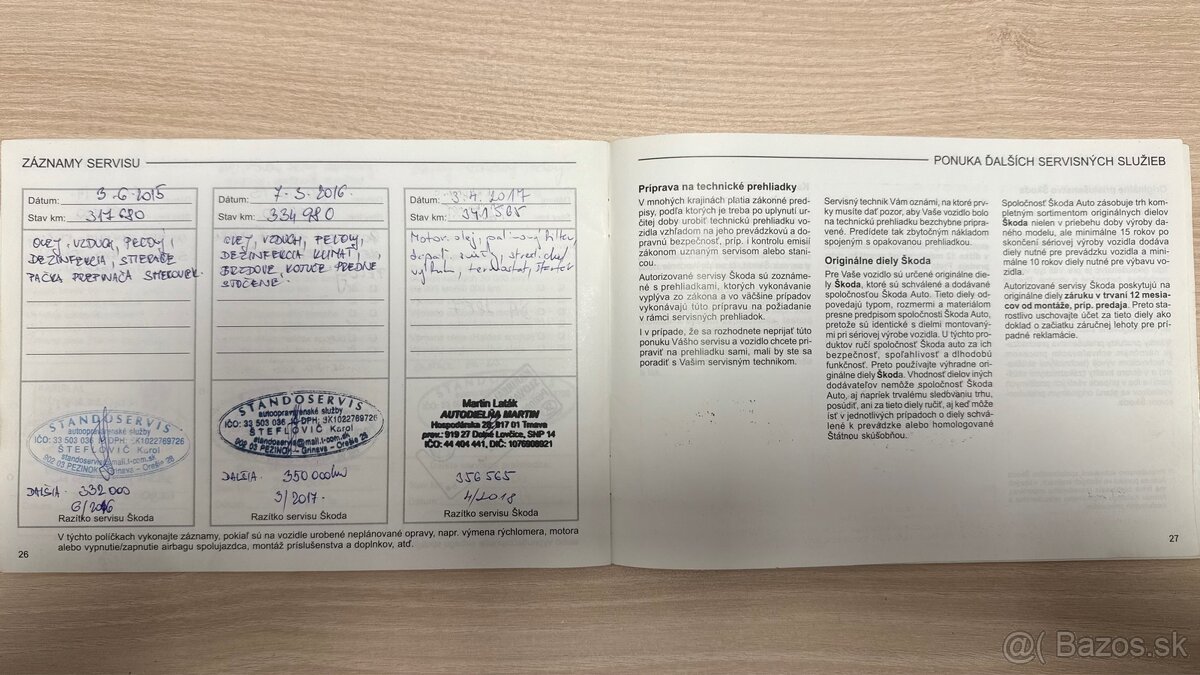 ZÁZNAMY SERVISU
Dátum: 3-6-2015
Stav km: 317680
OLEJ, VZDUCH, PEĽOVÝ,
DEZINFEKCIA, STIERAČE
PAČKA PREPÍNAČA SMEROVIEK.
STANDOSERVIS
autoopravárenské služby
IČO: 33 503 036 DPH: SK1022769726
ŠTEFLOVIČ Karol
standoservis@mail.t-com.sk
902 03 PEZINOK - Grinava - Orešie 28
ĎALŠIA. 332 000
6/2016
Razítko servisu Škoda
Dátum: 7-3-2016
Stav km: 334 980
OLEJ, VZDUCH, PEĽOVÝ,
DEZINFEKCIA KLIMAT.,
BRZDOVE KOTÚČE PREDNE
STOČENE.
STANDOSERVIS
autoopravárenské služby
IČO: 33 503 036 DPH: SK1022769726
ŠTEFLOVIČ Karol
standoservis@mail.t-com.sk
902 03 PEZINOK - Grinava - Orešie 28
ĎALŠIA. 350 000km
3/2017.
Razítko servisu Škoda
Dátum: 3.4.2017
Stav km: 341 565
Motor. olej, palivový filter,
výfuku, termostat, štartér
Martin Laták
AUTODIELŇA MARTIN
Hospodárska 28, 917 01 Trnava
prev.: 919 27 Dolné Lovčice, SNP 14
IČO: 44 404 441, DIČ: 1076908921
356 565
4/2018
Razítko servisu Škoda
V týchto políčkach vykonajte záznamy, pokiaľ sú na vozidle urobené neplánované opravy, napr. výmena rýchlomera, motora
alebo vypnutie/zapnutie airbagu spolujazdca, montáž príslušenstva a doplnkov, atď.
26
PONUKA ĎALŠÍCH SERVISNÝCH SLUŽIEB
Príprava na technické prehliadky
V mnohých krajinách platia zákonné pred-
pisy, podľa ktorých je treba po uplynutí ur-
čitej doby urobiť technickú prehliadku vo-
zidla vzhľadom na jeho prevádzkovú a do-
pravnú bezpečnosť, príp. i kontrolu emisií
zákonom uznaným servisom alebo stani-
cou.
Autorizované servisy Škoda sú zoznáme-
né s prehliadkami, ktorých vykonávanie
vyplýva zo zákona a vo väčšine prípadov
vykonávajú túto prípravu na požiadanie
v rámci servisných prehliadok.
I v prípade, že sa rozhodnete neprijať túto
ponuku Vášho servisu a vozidlo chcete pri-
praviť na prehliadku sami, mali by ste sa
poradiť s Vašim servisným technikom.
Servisný technik Vám oznámi, na ktoré prv-
ky musíte dať pozor, aby Vaše vozidlo bolo
na technickú prehliadku bezchybne pripra-
vené. Predídete tak zbytočným nákladom
spojeným s opakovanou prehliadkou.
Originálne diely Škoda
Pre Vaše vozidlo sú určené originálne die-
ly Škoda, ktoré sú schválené a dodávané
spoločnosťou Škoda Auto. Tieto diely od-
povedajú typom, rozmermi a materiálom
presne predpisom spoločnosti Škoda Auto,
pretože sú identické s dielmi montovaný-
mi pri sériovej výrobe vozidla. U týchto pro-
duktov ručí spoločnosť Škoda auto za ich
bezpečnosť, spoľahlivosť a dlhodobú
funkčnosť. Preto používajte výhradne ori-
ginálne diely Škoda. Vhodnosť dielov iných
dodávateľov nemôže spoločnosť Škoda
Auto, aj napriek trvalému sledovaniu trhu,
posúdiť, ani za tieto diely ručiť, aj keď môže
ísť v jednotlivých prípadoch o diely schvá-
lené k prevádzke alebo homologované
Štátnou skúšobňou.
Spoločnosť Škoda Auto zásobuje trh kom-
pletným sortimentom originálnych dielov
Škoda nielen v priebehu doby výroby da-
ného modelu, ale minimálne 15 rokov po
skončení sériovej výroby vozidla dodáva
dielu nutné pre prevádzku vozidla a mini-
málne 10 rokov diely nutné pre výbavu vo-
zidla.
Autorizované servisy Škoda poskytujú na
originálne diely záruku v trvaní 12 mesia-
cov od montáže, príp. predaja. Preto sta-
rostlivo uschovajte účet za tieto diely ako
doklad o začiatku záručnej lehoty pre prí-
padné reklamácie.
27
@( Bazos.sk